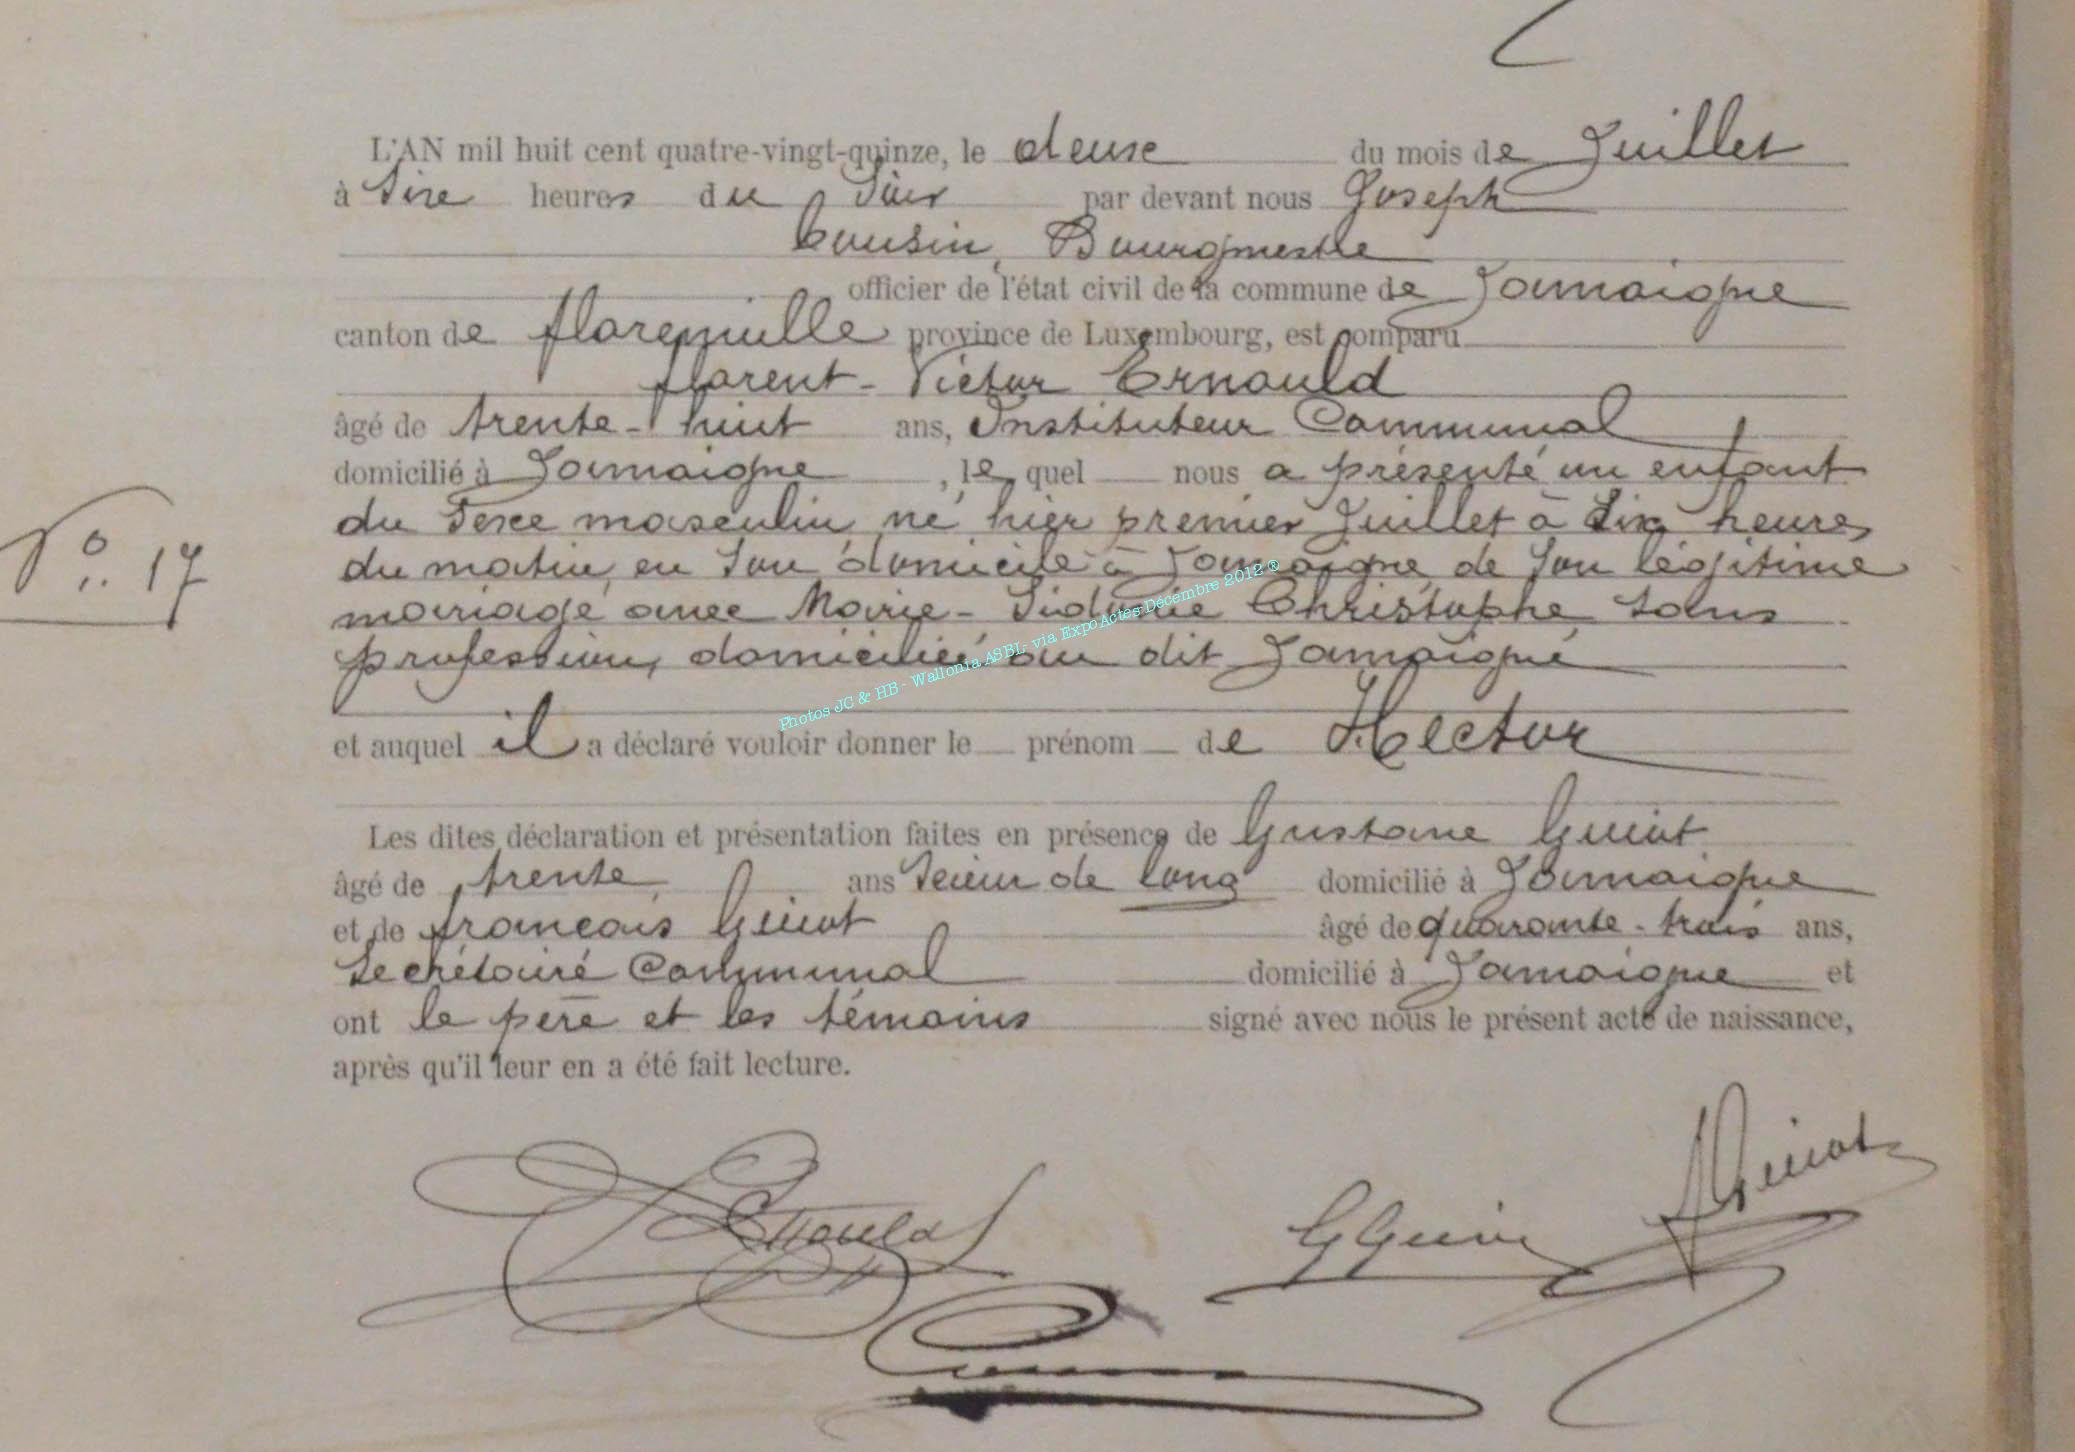 L'AN mil huit cent quatre-vingt-quinze, le deuxe du mois de Juillet
à Sixe heures du Soir par devant nous Joseph
Cousin, Bourgmestre
officier de l'état civil de la commune de Jamoigne
canton de florenville province de Luxembourg, est comparu
florent-Victor Ernould
âgé de trente-huit ans, Instituteur Communal
domicilié à Jamoigne, lequel nous a présenté un enfant
du Sexe masculin né hier premier Juillet à Six heures
du matin, en Son domicile à Jamoigne, de Son légitime
mariage avec Marie-Sidonie Christophe Sans
profession, domiciliée au dit Jamoigne
et auquel il a déclaré vouloir donner le prénom de Hector
Les dites déclaration et présentation faites en présence de Gustave Guiot
âgé de trente ans Scieur de long domicilié à Jamoigne
et de françois Guiot âgé de quarante-trois ans,
Secrétaire Communal domicilié à Jamoigne et
ont le père et les témoins signé avec nous le présent acte de naissance,
après qu'il leur en a été fait lecture.
No. 17
Photos JC & HB - Wallonia ASBL via ExpoActes Décembre 2012 ®
Ernould
G Guiot
F Guiot